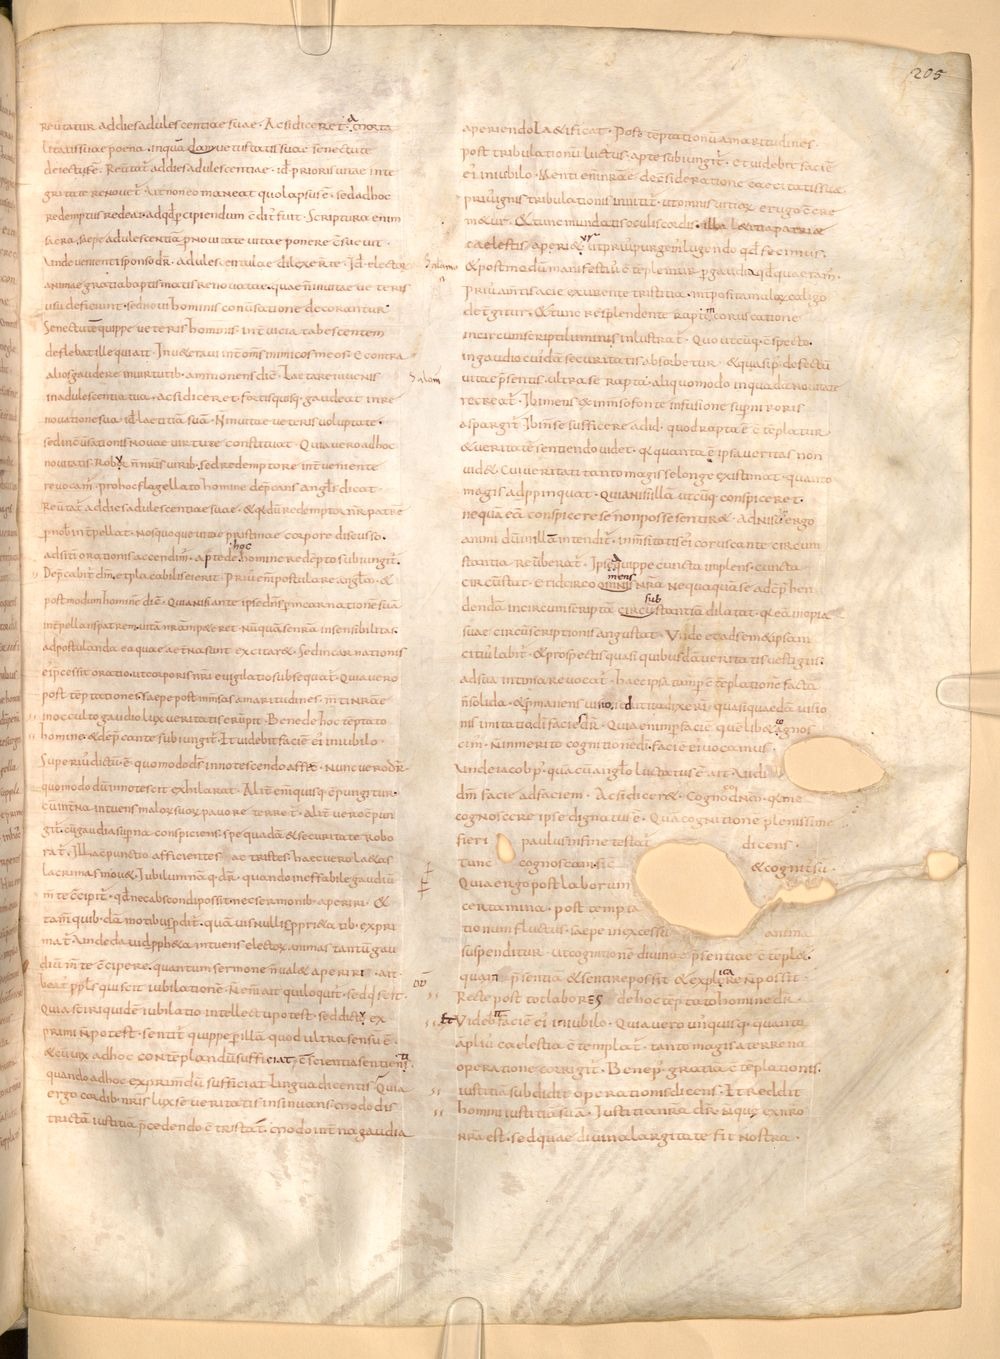 205
reuertatur addies adulescentiae suae · Acsidiceret · a morta
litatis suae poena · inqua uetustatis suae senectute
deiectus ÷ · Reuertat addies adulescentiae · id priori uitae inte
gritate renouet · Ut non eo maneat quo lapsus ÷ · sed adhoc
redemptus redeat · adqd pcipiendum cdit fuit · Scriptura enim
sacra saepe adulescentia pnouitate uitae ponere csueuit ·
Unde uenienti sponso dr · adulescentulae dilexerte · Id electo
animae gratia baptismatis renouatae · quae ninuitae ueteris
usu deficiunt · sed noui hominis conuersatione decorantur ·
Senectute quippe ueteris hominis int uicia tabescentem
deflebat ille qui ait · Inueteraui int oms inimicos meos · E contra
alios gaudere inuirtutib · ammonens dic · Laetare iuuenis
inadulescentia tua · Acsidiceret · fortis quisq · gaudeat inre
nouatione sua · id laetitia suam · N inuitae ueteris uoluptate ·
sed incuersationis nouae uirtute constituat · Quia uero adhoc
nouitatis robur n nris uirib · sed redemptore int ueniente
reuocam · pro hoc flagellato homine depcans angls dicat
Reuertat addies adulescentiae suae · & qd du redemptor nr patre
pnob int pellat · nos quoque uitae pristinae torpore discusso ·
adsiti orationis accendim · apte de hoc homine redepto subiungit ·
Depcabit dm · & placabilis ei erit · Prius em postulare anglm · &
postmodum homine dic · Quia nisi ante ipse dns pincarnatione sua
int pellans patrem · uita nram peteret · nuqua se nra insensibilitas
ad postulanda ea quae aeterna sunt excitaret · Sed incarnationis
ei pcessit oratio · ut torporis nri euigilatio subsequat · Quia uero
post teptationes · saepe post inmsas amaritudines · mti nrae
inocculto gaudio lux ueritatis erupit · Bene de hoc teptato
homine & depcante subiungit · Et uidebit facie ei in iubilo ·
Superius dictu ÷ · quomodo ds innotescendo affec · nunc uero dr ·
quomodo du innotescit exhilarat · Alit em quisq cpungitur ·
cu int na intuens malor suor pauore terret · Alit uero cpun
git · cu gaudia supna conspiciens · spe quada & securitate robo
rat · Illa cpunctio afficientes ac tristes · haec uero laetas
lacrimas mouet · Iubilum na q dr · quando ineffabile gaudiu
mte ccipit · qd nec abscondi possit · nec sermonib · aperiri · &
tam quib da motibus pdit · quam uis nullis ppri&atib · expri
mat · Unde dauid ppheta intuens elector animas tantu gau
diu mte ccipere · quantum sermone n ualet aperiri · ait ·
Beat ppls qui scit iubilatione · Nem ait qui loquit · sed qui scit ·
Quia sciri quide iubilatio intellectu potest · sed dictu ex
primi n potest · sentit quippe p illa quod ultra sensu ÷ ·
& cu uix adhoc conteplandu sufficiat cscientia sentientis
quando adhoc exprimdu sufficiat lingua dicentis · Quia
ergo cordib · nris lux se ueritatis insinuans · modo dis
trictam iustitia pcedendo c tristat · modo int na gaudia
aperiendo laetificat · Post teptationu amaritudines ·
post tribulationu luctus · apte subiungit · Et uidebit facie
ei in iubilo · Menti em nrae de csideratione caecitatis suae
prius ignis tribulationis inmittit · ut omnis uitior erugo cre
metur · & tunc mundatis oculis cordis · illa laetitia patriae
caelestis aperiet · ut prius purgem lugendo qd fecimus ·
& postmodu manifestius ctepletur p gaudia qd quaeram ·
Prius a mtis acie exurente tristitia int posita malor caligo
detgitur · & tunc resplendente raptim coruscatione
incircumscripti luminis inlustrat · Quo utcuq cspecto ·
in gaudio cuida securitatis absorbetur · & quasi p defectu
uitae psentis · ultra se rapta · aliquo modo in quada nouitate
recreat · Ibi mens ex inmso fonte infusione supni roris
aspargit · Ibi n se sufficere adid quod rapta ÷ c templatur ·
& ueritate sentiendo uidet · qa quanta ÷ ipsa ueritas non
uidet · Cui ueritati tanto magis se longe existimat · quanto
magis adppinquat · Quia nisi illa utcuq conspiceret ·
nequa ea conspicere se non posse sentiret · Adnisus ergo
animi du in illa intendit · inmsitatis ei coruscante circum
stantia reuberat · Ipsa quippe cuncta implens · cuncta
circustat · Et idcirco mens nra nequaqua se ad cphen
denda incircumscripta circustantia dilatat · qa ea inopia
suae circuscriptionis angustat · Unde et ad semetipsam
citius labit · & prospectis quasi quibus da ueritatis uestigiis ·
adsua intima reuocat · Haec ipsa tam p cteplatione facta
n solida & pmanens uisio · sed ut ita dixeri quasi quaeda uisio
nis imitatio di facies dr · Quia enim p facie que libet agnos
cim · n inmerito cognitione di · facie ei uocamus ·
Unde iacob p · qua cu anglo luctatus ÷ ait · Uidi
dm facie ad faciem · Acsi diceret · Cognoui dnm · qa me
cognoscere ipse dignatus ÷ · Qua cognitione plenissime
fieri paulus in fine testat dicens ·
tunc cognoscam sic & cognit su ·
Quia ergo post laborum
certamina · post tempta
tionum fluctus · saepe in excessu anima
suspenditur · ut cognitione diuinae psentiae cteple ·
quam psentia & sentire possit & explere n possit ·
Recte post tot labores de hoc teptato homine dr ·
Et Videbit facie ei in iubilo · Quia uero unusquisq quanto
aplius caelestia cteplat · tanto magis a terrena
operatione corrigit · Bene p gratia cteplationis ·
iustitia subdidit operationis dicens · Et reddit
homini iustitia sua · Iustitia nra dr · Neque ex nro
nra est · sed quae diuina largitate fit nostra ·